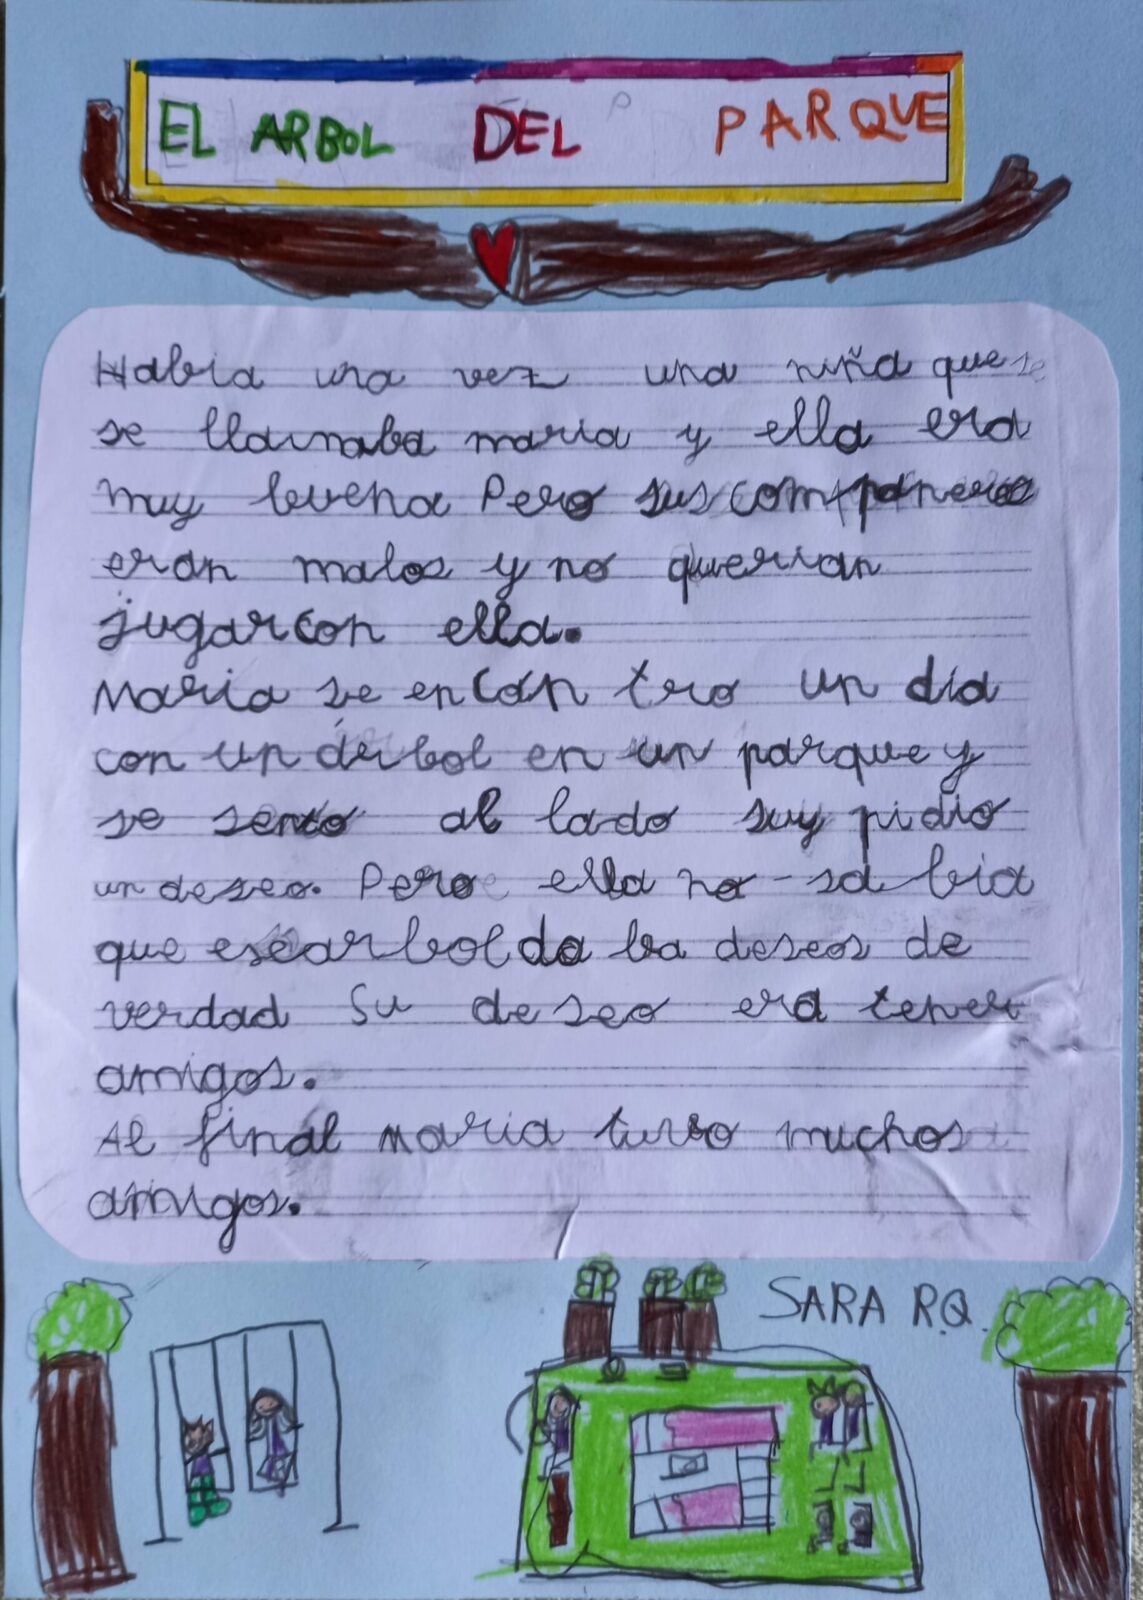 EL ARBOL DEL PARQUE
Habia una vez una niña que se
se llamaba maria y ella era
muy buena Pero sus compañeros
eran malos y no querian
jugar con ella.
Maria se encon tro un dia
con un arbol en un parque y
se sento al lado suy pidio
un deseo. Pero ella no - sa bia
que ese arbol da ba deseos de
verdad Su deseo era tener
amigos.
Al final Maria tuvo muchos
amigos.
SARA R.Q.